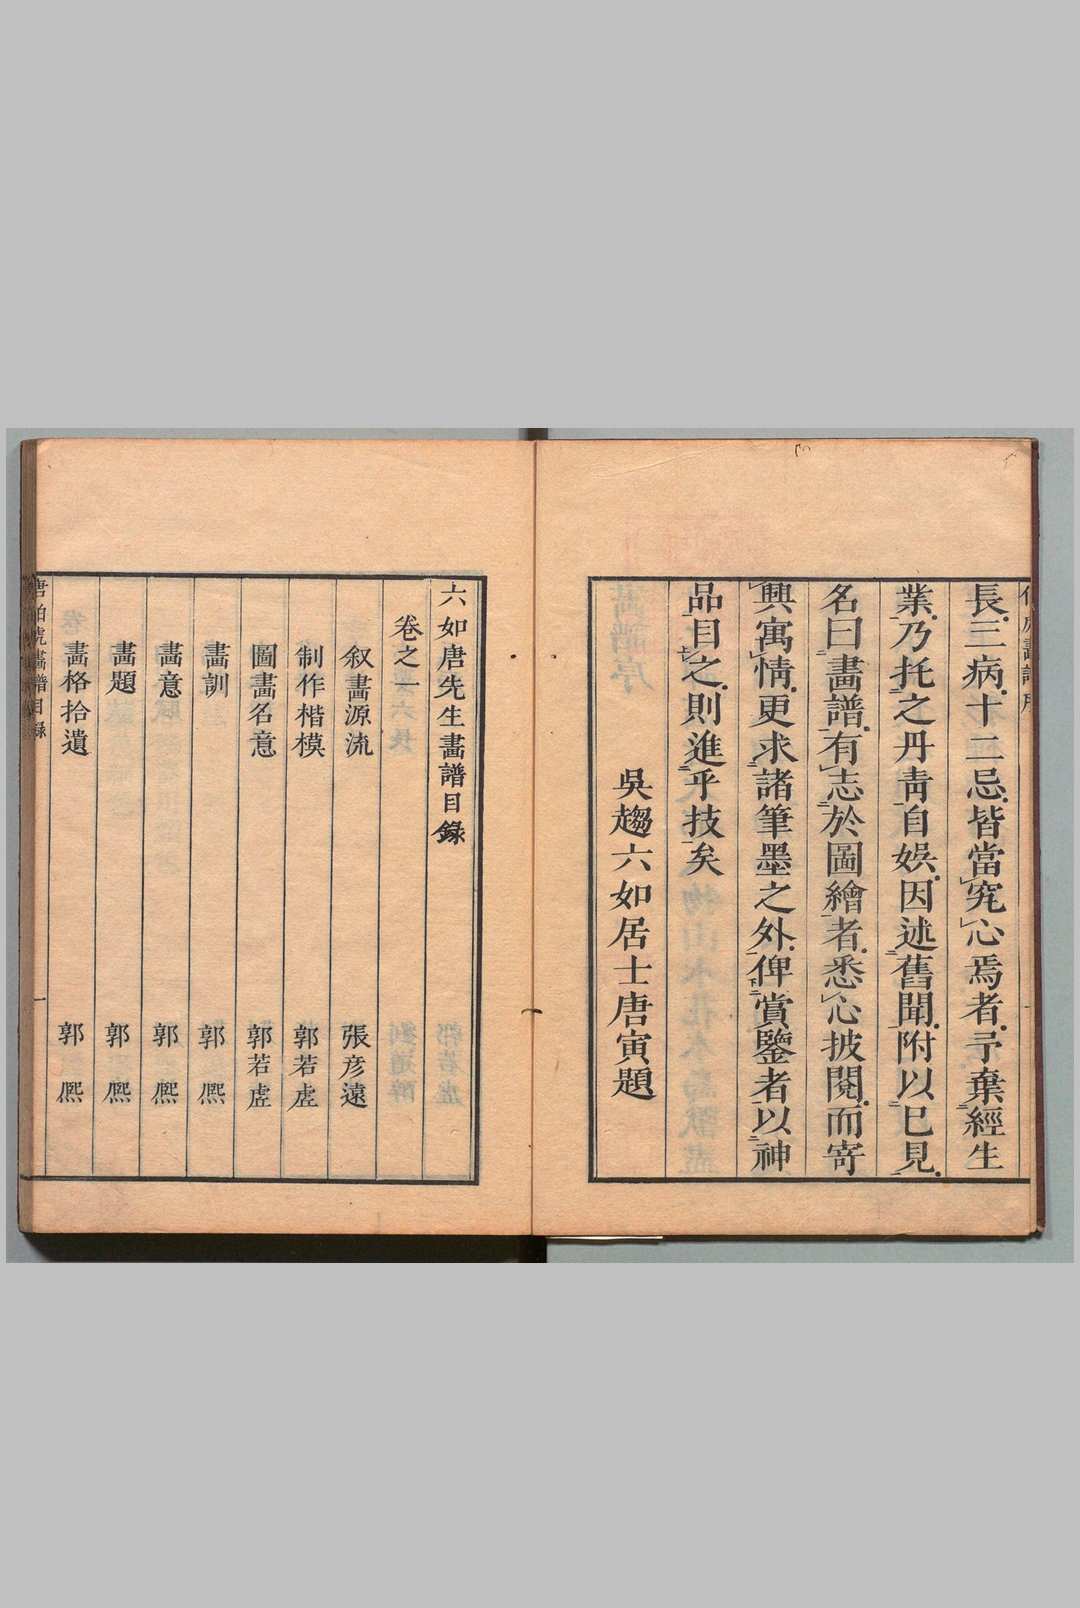 長三病十二忌皆當究心焉者予棄經生
業乃托之丹靑自娛因述舊聞附以巳見
名曰畫譜有志於圖繪者悉心披閱而寄
興寓情更求諸筆墨之外俾賞鑒者以神
品目之則進乎技矣
吳趨六如居士唐寅題
六如唐先生畫譜目錄
卷之一
叙畫源流 張彥遠
制作楷模 郭若虛
圖畫名意 郭若虛
畫訓 郭熈
畫意 郭熈
畫題 郭熈
畫格拾遺 郭熈
唐伯虎畫譜目錄 一